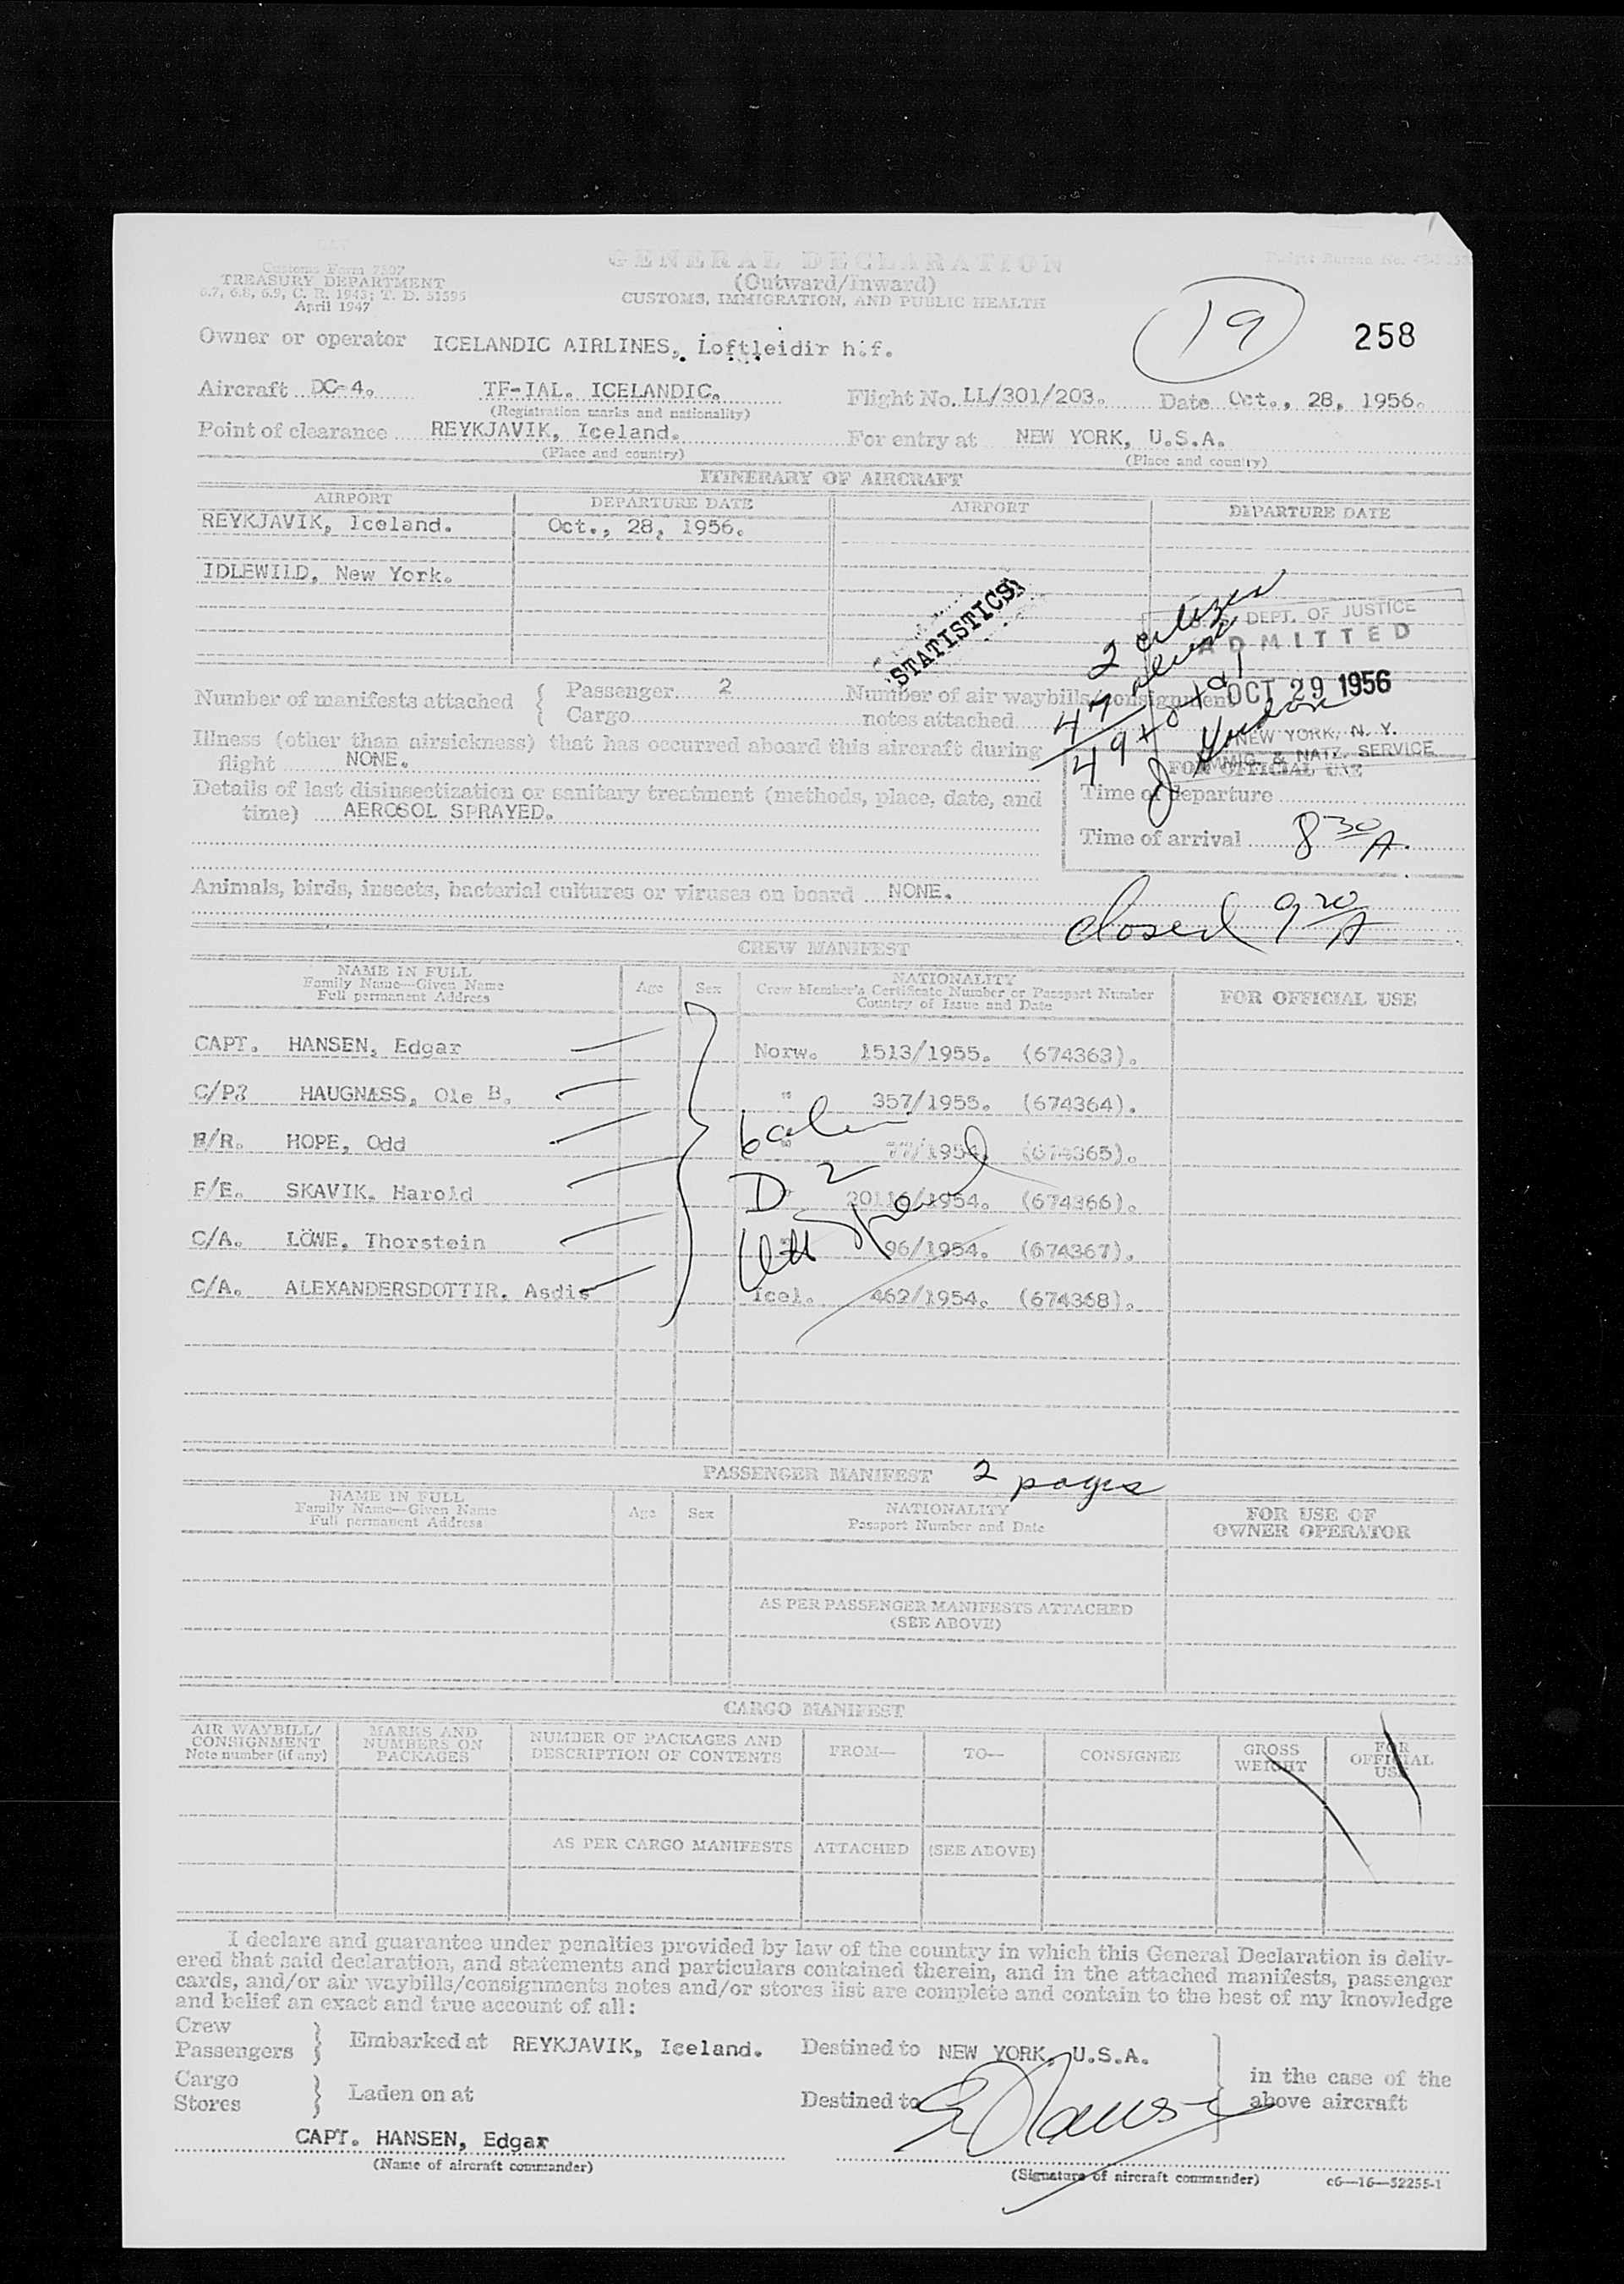 Customs Form 7507
TREASURY DEPARTMENT
6.7, 6.8, 6.9, C. R. 1943; T. D. 51595
April 1947
GENERAL DECLARATION
(Outward/Inward)
CUSTOMS, IMMIGRATION, AND PUBLIC HEALTH
19
258
Owner or operator ICELANDIC AIRLINES, Loftleidir h.f.
Aircraft DC-4. TF-IAL. ICELANDIC. Flight No. LL/301/203. Date Oct., 28, 1956.
(Registration marks and nationality)
Point of clearance REYKJAVIK, Iceland. For entry at NEW YORK, U.S.A.
(Place and country) (Place and country)
ITINERARY OF AIRCRAFT
AIRPORT DEPARTURE DATE AIRPORT DEPARTURE DATE
REYKJAVIK, Iceland. Oct., 28, 1956.
IDLEWILD, New York.
STATISTICS
2 citizen
47
49
DEPT. OF JUSTICE
ADMITTED
OCT 29 1956
NEW YORK, N. Y.
IMMIG. & NATZ. SERVICE
Number of manifests attached { Passenger 2 Number of air waybills/consignment
Cargo notes attached
Illness (other than airsickness) that has occurred aboard this aircraft during
flight NONE.
FOR OFFICIAL USE
Details of last disinsectization or sanitary treatment (methods, place, date, and
time) AEROSOL SPRAYED.
Time of departure
Time of arrival 8 30 A.
Animals, birds, insects, bacterial cultures or viruses on board NONE.
closed 9 20 A
CREW MANIFEST
NAME IN FULL
Family Name—Given Name
Full permanent Address
Age Sex
NATIONALITY
Crew Member's Certificate Number or Passport Number
Country of Issue and Date
FOR OFFICIAL USE
CAPT. HANSEN, Edgar Norw. 1513/1955. (674363).
C/P? HAUGNÆSS, Ole B. " 357/1955. (674364).
R/R. HOPE, Odd " 77/1954. (674365).
F/E. SKAVIK. Harold 20116/1954. (674366).
C/A. LÖWE, Thorstein 96/1954. (674367).
C/A. ALEXANDERSDOTTIR. Asdis Icel. 462/1954. (674368).
D 2
PASSENGER MANIFEST 2 pages
NAME IN FULL
Family Name—Given Name
Full permanent Address
Age Sex
NATIONALITY
Passport Number and Date
FOR USE OF
OWNER OPERATOR
AS PER PASSENGER MANIFESTS ATTACHED
(SEE ABOVE)
CARGO MANIFEST
AIR WAYBILL/
CONSIGNMENT
Note number (if any)
MARKS AND
NUMBERS ON
PACKAGES
NUMBER OF PACKAGES AND
DESCRIPTION OF CONTENTS
FROM— TO— CONSIGNEE
GROSS
WEIGHT
FOR
OFFICIAL
USE
AS PER CARGO MANIFESTS ATTACHED (SEE ABOVE)
I declare and guarantee under penalties provided by law of the country in which this General Declaration is deliv-
ered that said declaration, and statements and particulars contained therein, and in the attached manifests, passenger
cards, and/or air waybills/consignments notes and/or stores list are complete and contain to the best of my knowledge
and belief an exact and true account of all:
Crew
Passengers } Embarked at REYKJAVIK, Iceland. Destined to NEW YORK, U.S.A.
Cargo
Stores } Laden on at Destined to
in the case of the
above aircraft
E Hansen
CAPT. HANSEN, Edgar
(Name of aircraft commander) (Signature of aircraft commander) c6—16—52255-1